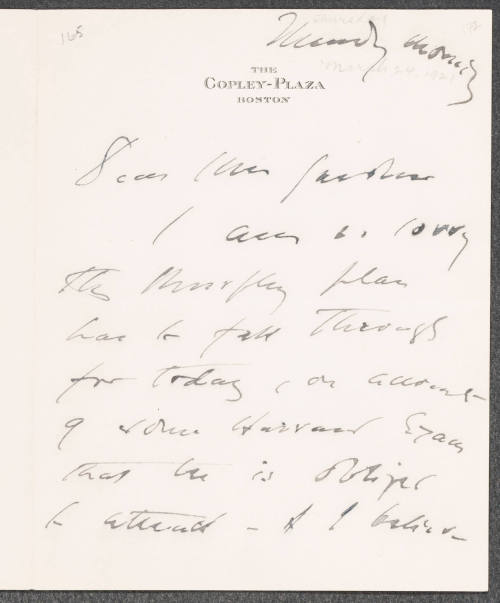 165
Thursday
Thursday Morning
March 24, 192
THE
COPLEY-PLAZA
BOSTON
Dear Mrs Gardner
I am so sorry
the plan
has to fall through
for today, on account
of some Harvard Exam
that he is obliged
to attend - & I believe